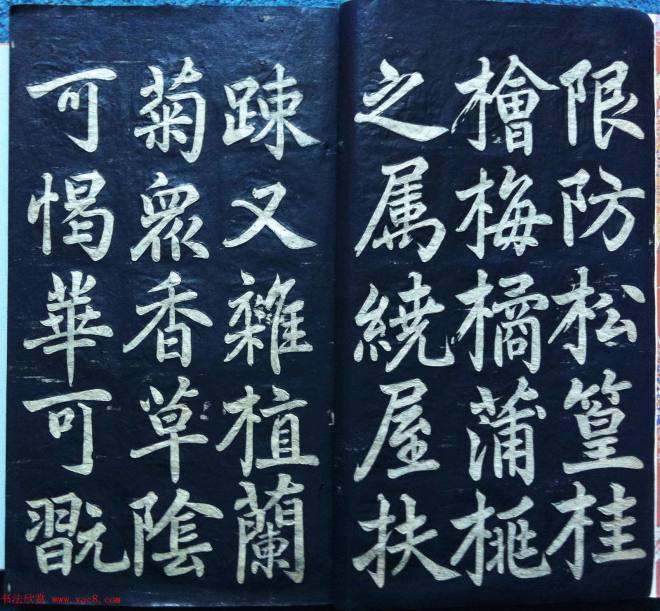 限防松篁桂
檜梅橘蒲桃
之属繞屋扶
踈又雜植蘭
菊衆香草陰
可愒華可翫
书法欣赏 www.yac8.com